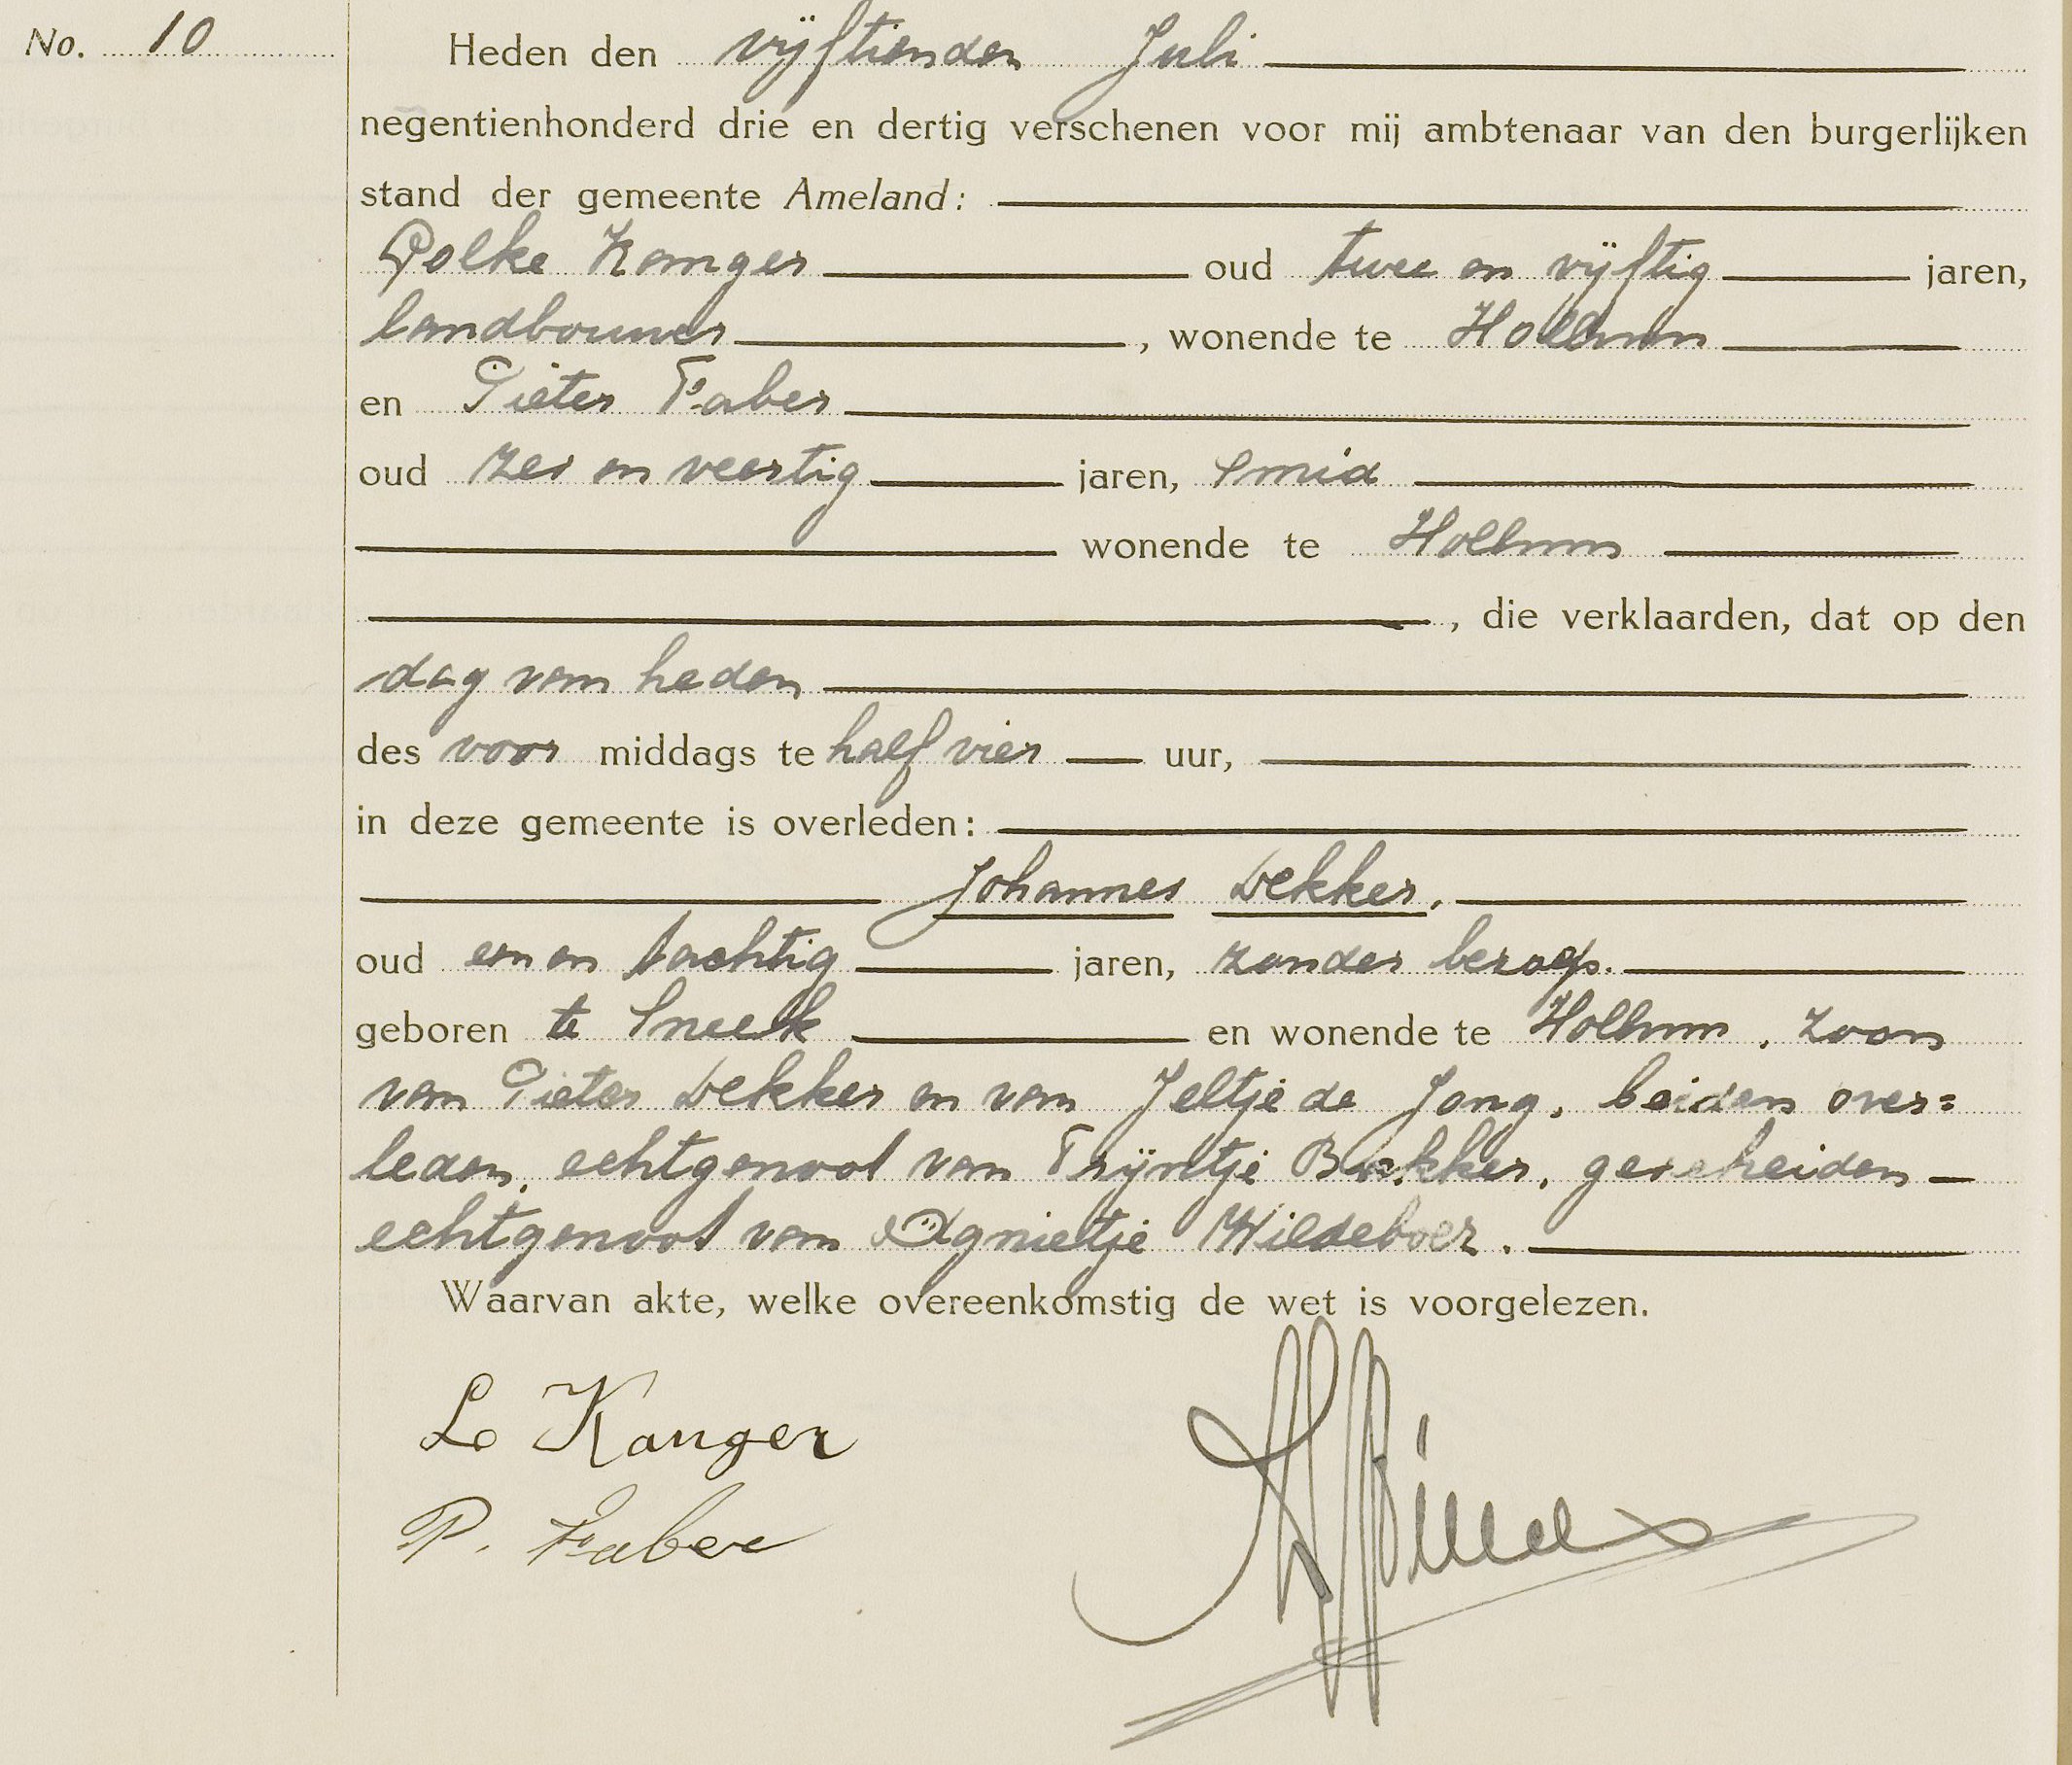 No. 10
Heden den vijftienden Juli
negentienhonderd drie en dertig verschenen voor mij ambtenaar van den burgerlijken
stand der gemeente Ameland:
Polke Kanger oud twee en vijftig jaren,
landbouwer, wonende te Hollum
en Pieter Faber
oud zes en veertig jaren, smid
wonende te Hollum
, die verklaarden, dat op den
dag van heden
des voor middags te half vier uur,
in deze gemeente is overleden:
Johannes Dekker.
oud een en tachtig jaren, zonder beroep.
geboren te Sneek en wonende te Hollum, zoon
van Pieter Dekker en van Jeltje de Jong, beiden over=
leden, echtgenoot van Trijntje Bakker, gescheiden
echtgenoot van Agnietje Wildeboer.
Waarvan akte, welke overeenkomstig de wet is voorgelezen.
Kanger
P. Faber